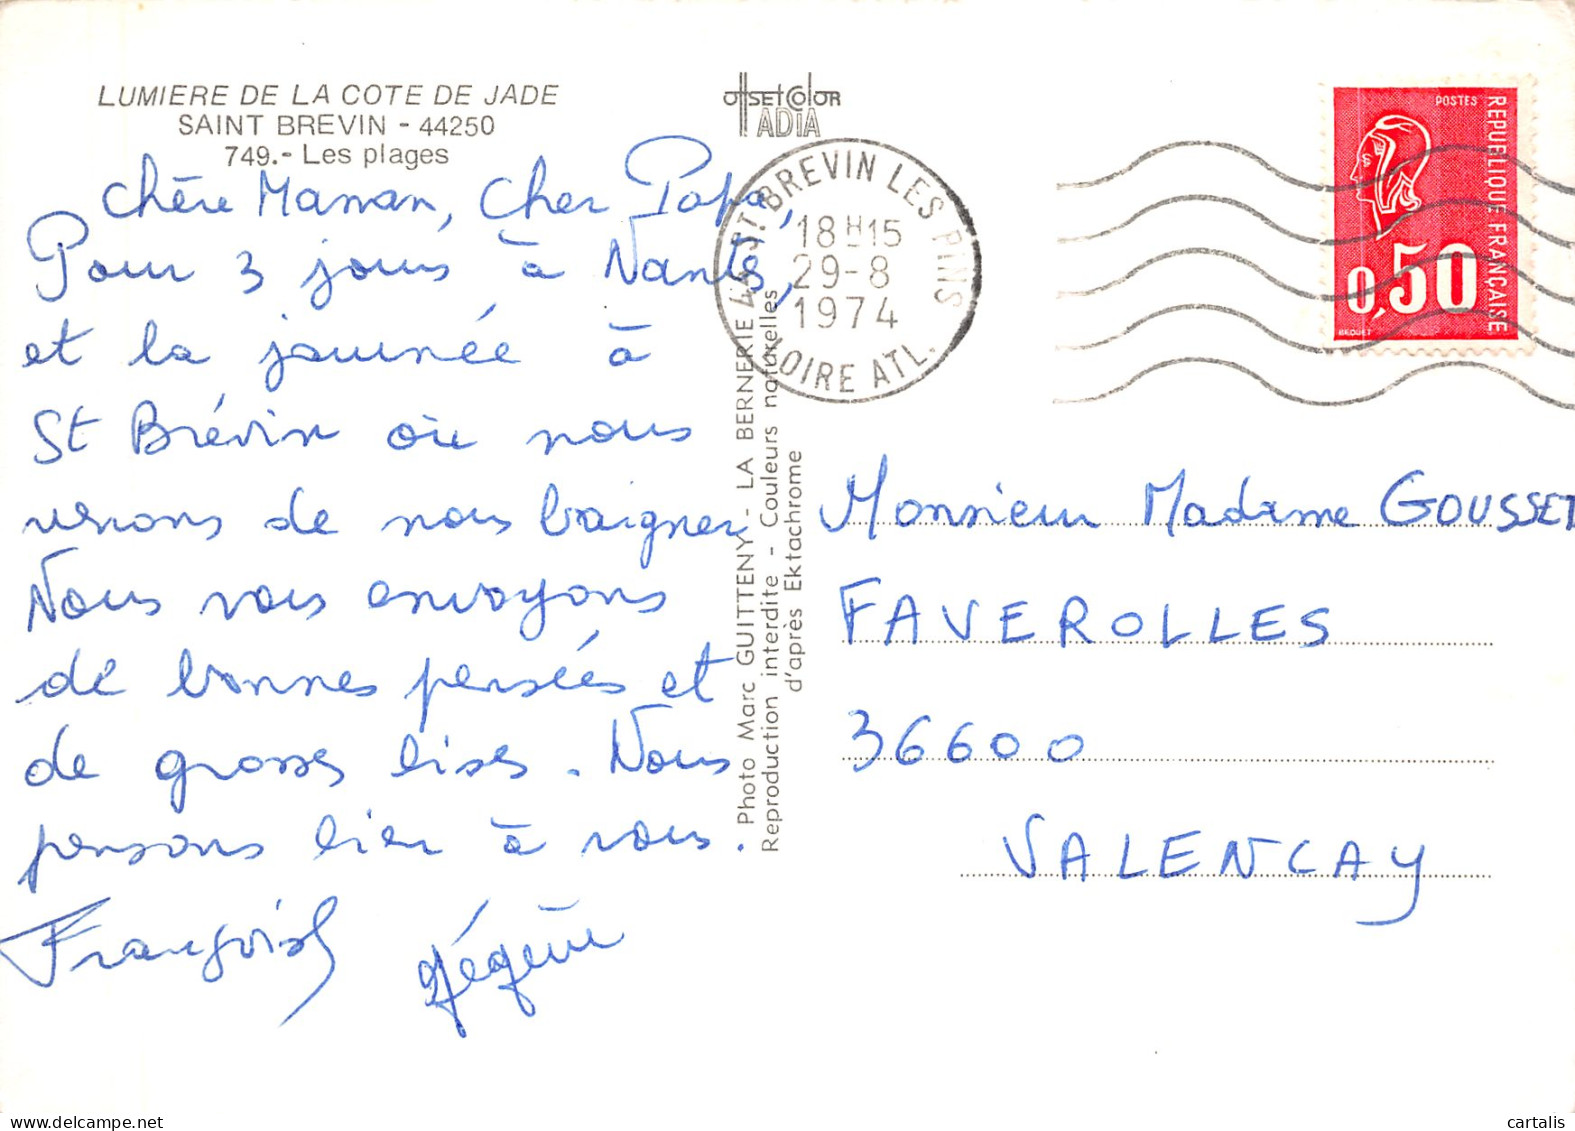 LUMIERE DE LA COTE DE JADE
SAINT BREVIN - 44250
749.- Les plages
offSET COlOR
TADIA
Chère Maman, Cher Papa,
Pour 3 jours à Nantes,
et la journée à
St Brévin où nous
venons de nous baigner
Nous vous envoyons
de bonnes pensées et
de grosses bises. Nous
pensons bien à vous.
44 ST BREVIN LES PINS
18H15
29-8
1974
LOIRE ATL.
Photo Marc GUITTENY - LA BERNERIE
Reproduction interdite - Couleurs naturelles
d'après Ektachrome
POSTES
REPUBLIQUE FRANÇAISE
0,50
BEQUET
Monsieur Madame GOUSSET
FAVEROLLES
36600
VALENCAY
cartalis